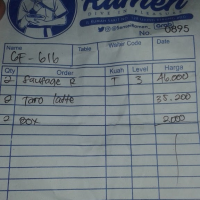 Ramen
Order
No. 0895
Name Table Waiter Code Date
GF - 616
Qty Order Kuah Level Harga
2 Sausage R T 3 46.000
2 Taro latte 35.200
2 BOX 2.000